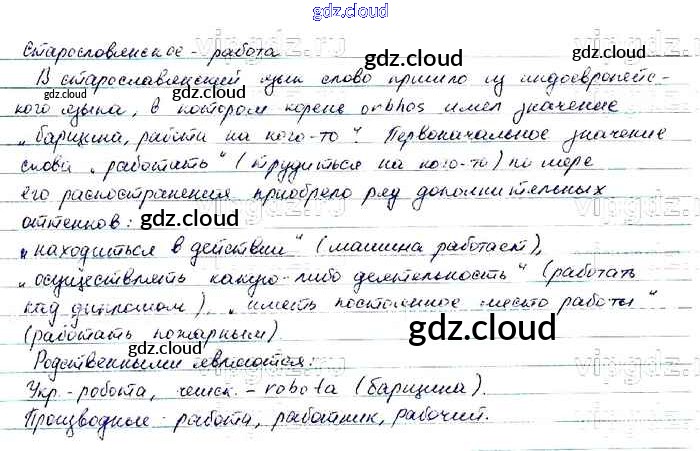 gdz.cloud
Старославянское - работа
В старославянский язык слово пришло из индоевропейс-
кого языка, в котором корень orbhos имел значение
„барщина, работа на кого-то". Первоначальное значение
слова „работать" (трудиться на кого-то) по мере
его распостранения приобрело ряд дополнительных
оттенков:
„находиться в действии" (машина работает),
„осуществлять какую-либо деятельность" (работать
над дипломом), „иметь постоянное место работы"
(работать пожарным)
Родственными являются:
Укр.- робота, чешск. - robota (барщина).
Производные - работа, работник, рабочий.